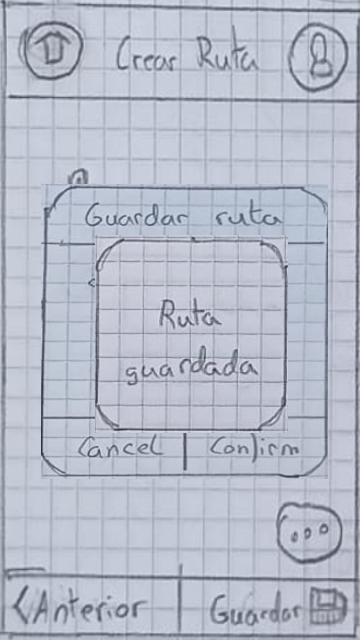 Crear Ruta
Guardar ruta
Ruta
guardada
Cancel | Confirm
...
<Anterior | Guardar